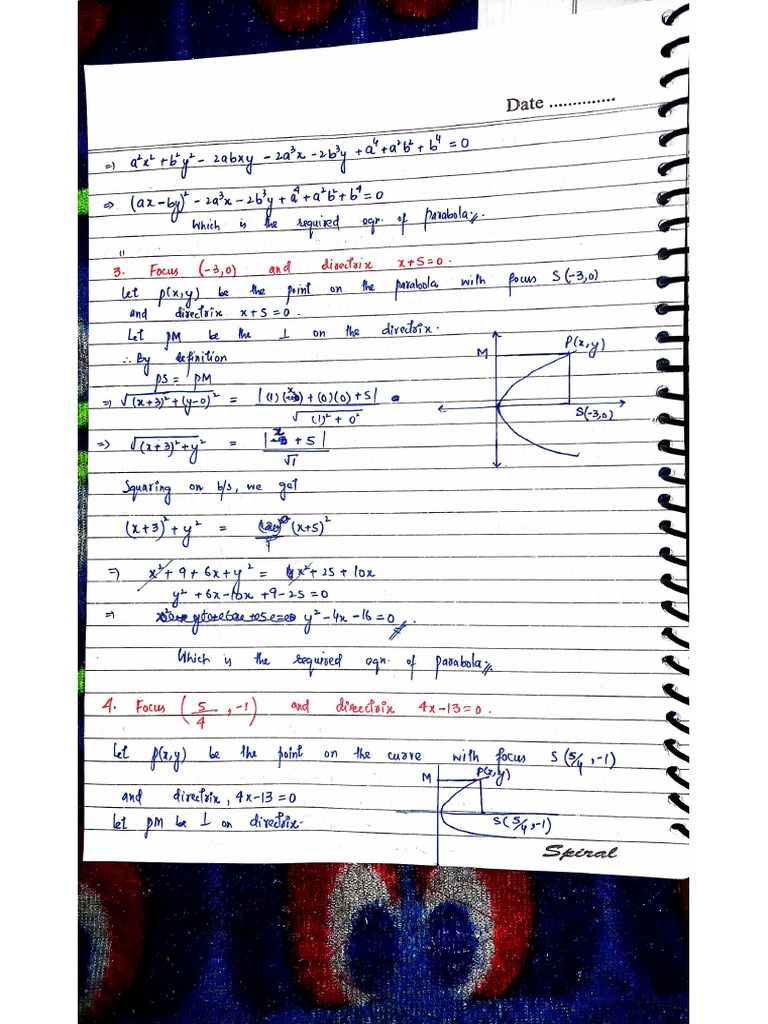 Date ..............
=) a²x² + b²y² - 2abxy - 2a³x - 2b³y + a⁴ + a²b² + b⁴ = 0
=> (ax - by)² - 2a³x - 2b³y + a⁴ + a²b² + b⁴ = 0
Which is the required eqn. of parabola.
3. Focus (-3,0) and directrix x+5=0.
Let P(x,y) be the point on the parabola with focus S(-3,0)
and directrix x+5=0.
Let PM be the ⊥ on the directrix.
∴ By definition
PS = PM
M
P(x,y)
S(-3,0)
=) √(x+3)² + (y-0)² = |(1)(x)+(0)(0)+5| / √(1)²+0²
=) √(x+3)² + y² = |x+5| / √1
Squaring on b/s, we get
(x+3)² + y² = (x+5)² / 1
=) x² + 9 + 6x + y² = x² + 25 + 10x
y² + 6x - 10x + 9 - 25 = 0
=) y² - 4x - 16 = 0.
Which is the required eqn. of parabola.
4. Focus (5/4, -1) and directrix 4x-13=0.
Let P(x,y) be the point on the curve with focus S(5/4, -1)
M
P(x,y)
and directrix, 4x-13=0
Let PM be ⊥ on directrix.
S(5/4, -1)
Spiral